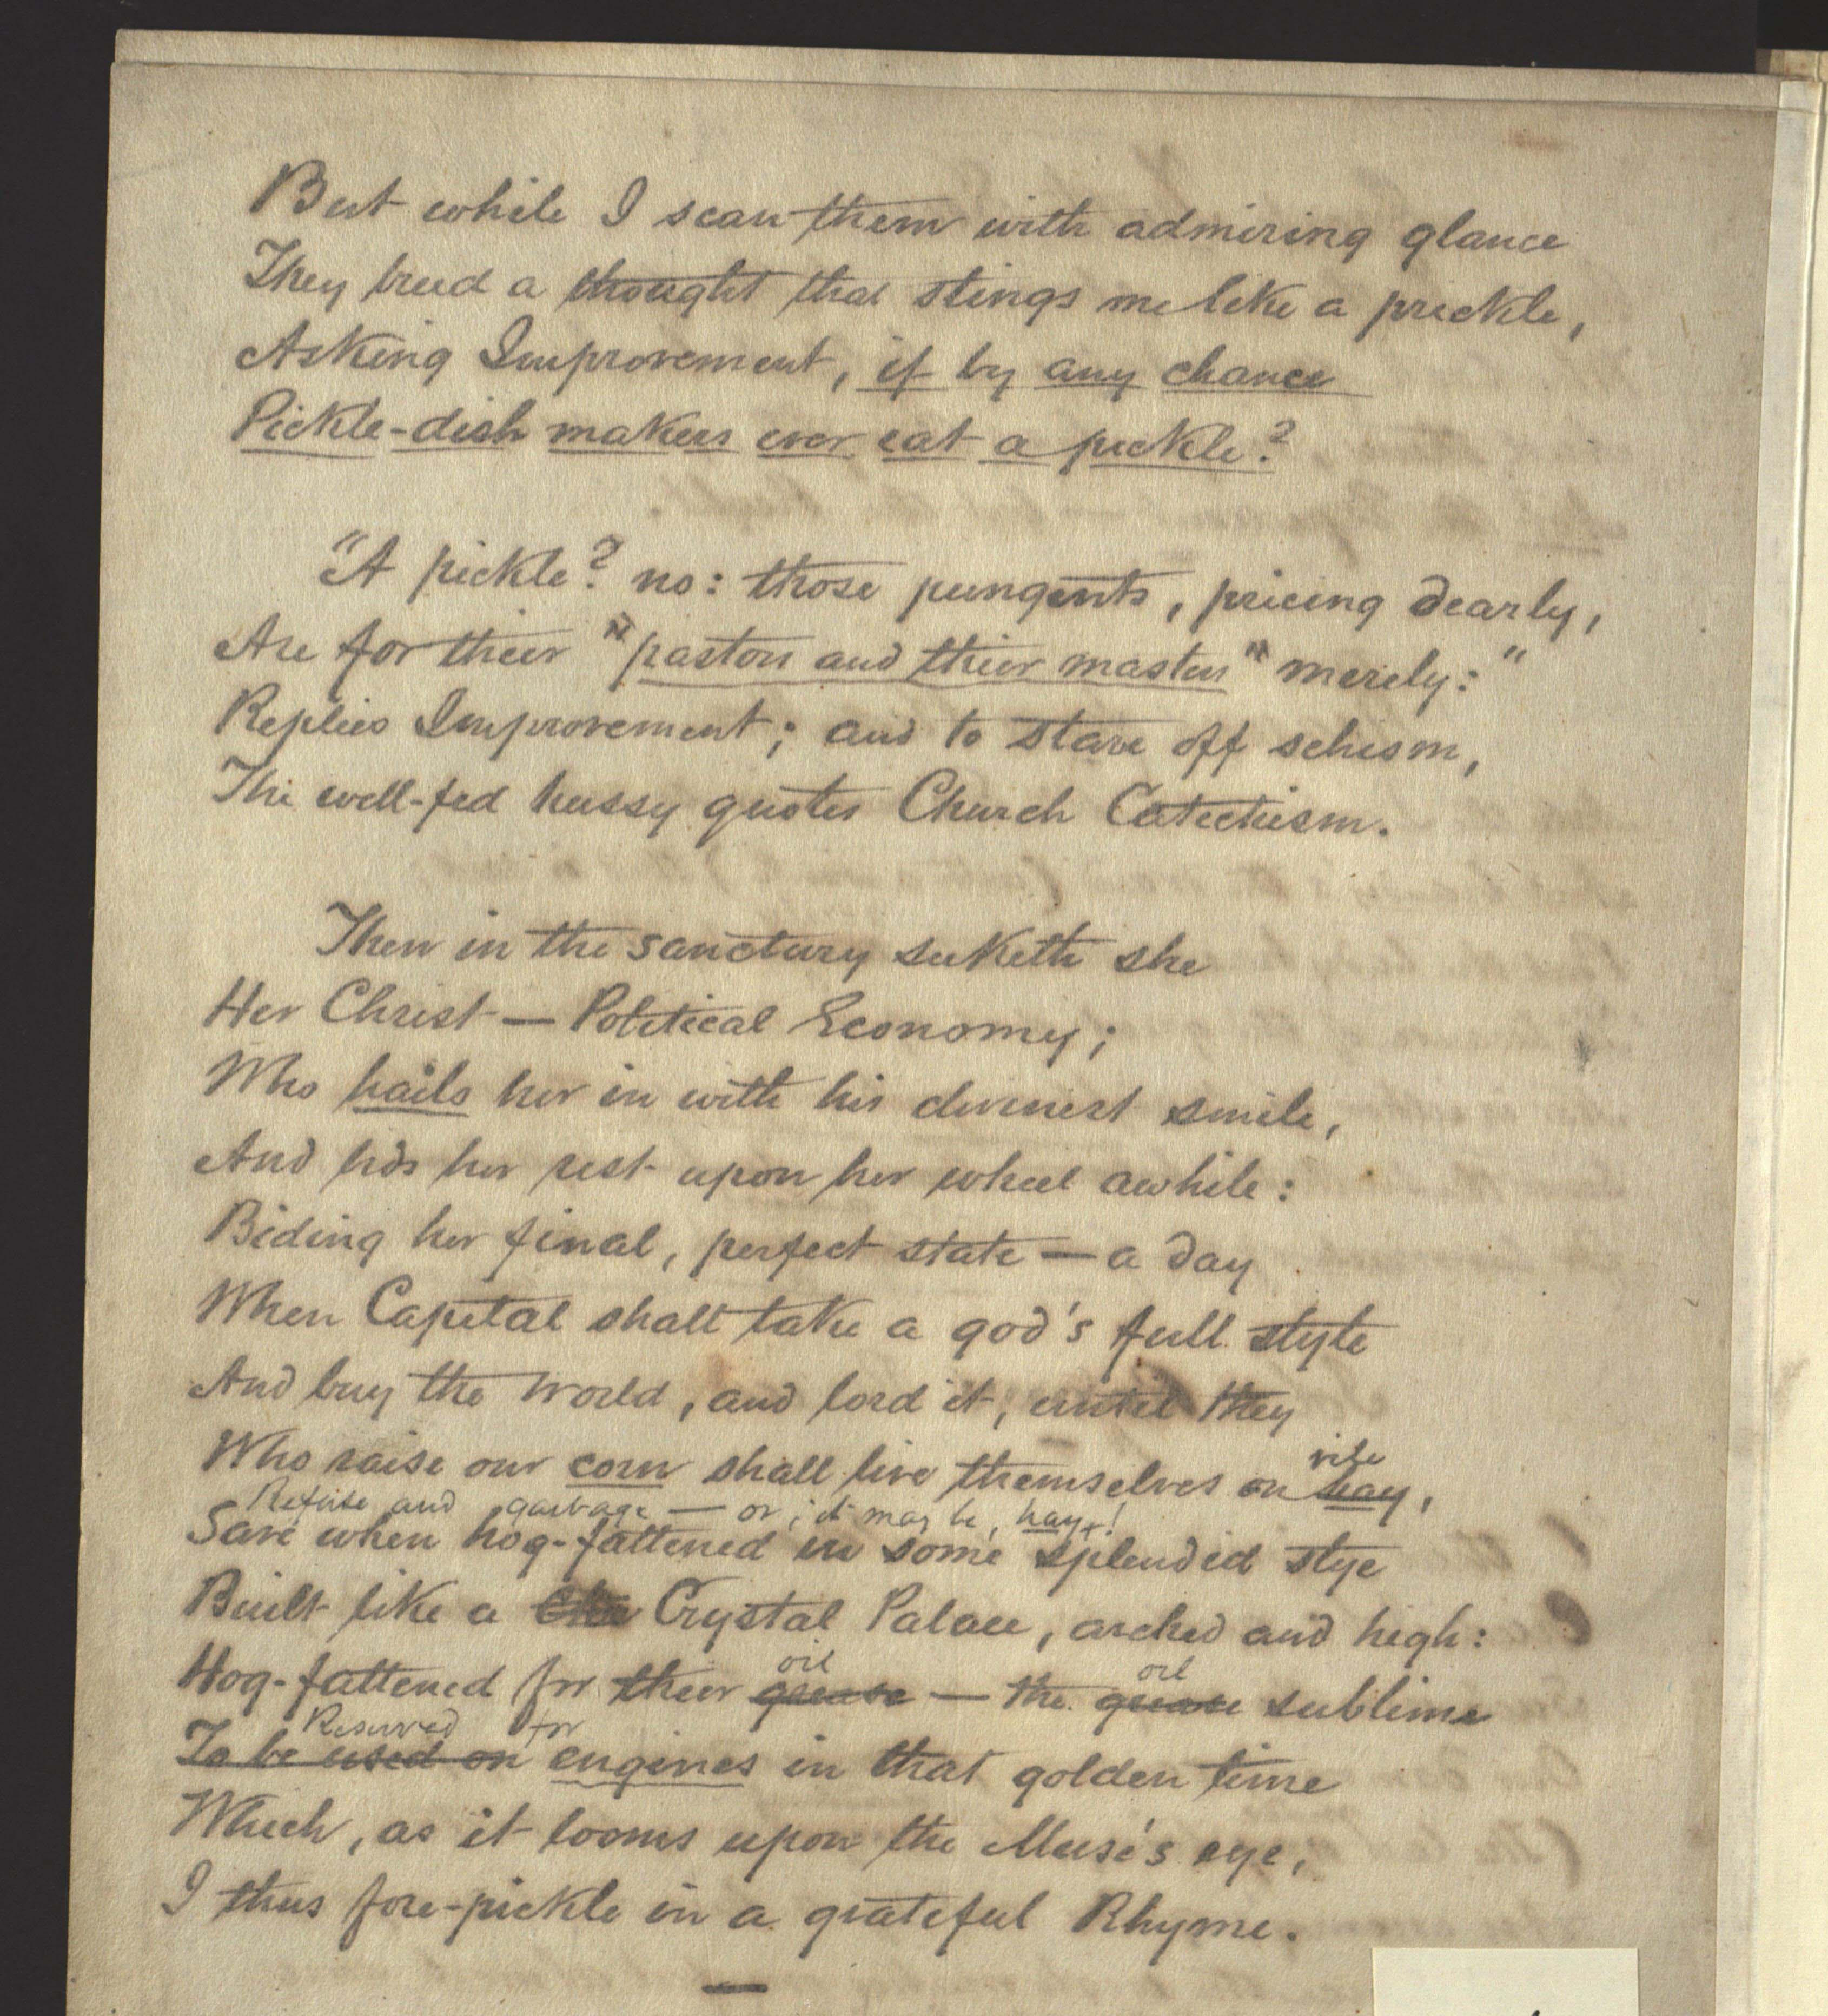 But while I scan them with admiring glance
They breed a thought that stings me like a prickle,
Asking Improvement, if by any chance
Pickle-dish makers ever eat a pickle?
"A pickle? no: those pungents, pricing dearly,
Are for their "pastors and their masters" merely:"
Replies Improvement; and to stave off schism,
The well-fed hussy quotes Church Catechism.
Then in the sanctury seeketh she
Her Christ — Political Economy;
Who hails her in with his divinest smile,
And bids her rest upon her wheel awhile:
Biding her final, perfect state — a day
When Capital shall take a god's full style
And buy the World, and lord it, until they
vile
Who raise our corn shall live themselves on hay,
Refuse and garbage — or, it may be, hay!
Save when hog-fattened in some splendid stye
Built like a Crystal Palace, arched and high:
oil oil
Hog-fattened for their grease — the grease sublime
Reserved for
To be used on engines in that golden time
Which, as it looms upon the Muse's eye,
I thus fore-pickle in a grateful Rhyme.
—